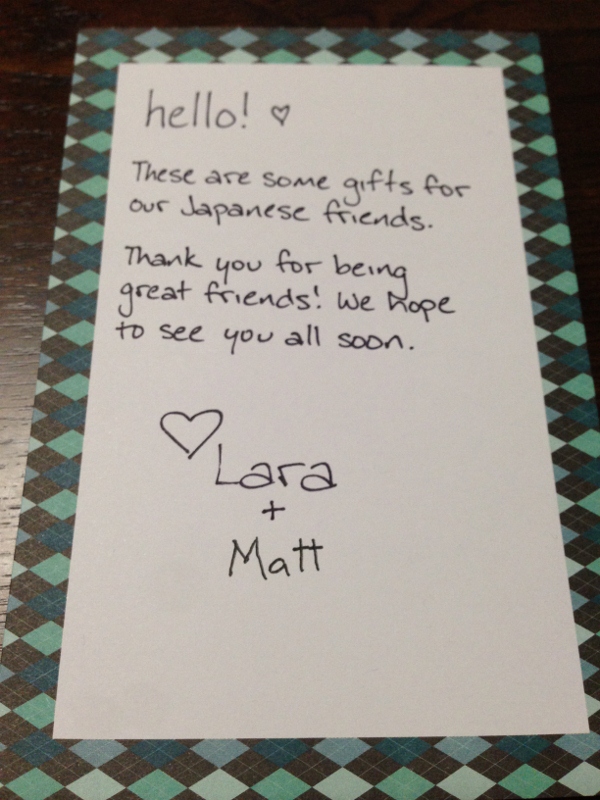 hello! ♡
These are some gifts for
our Japanese friends.
Thank you for being
great friends! We hope
to see you all soon.
♡ Lara
+
Matt